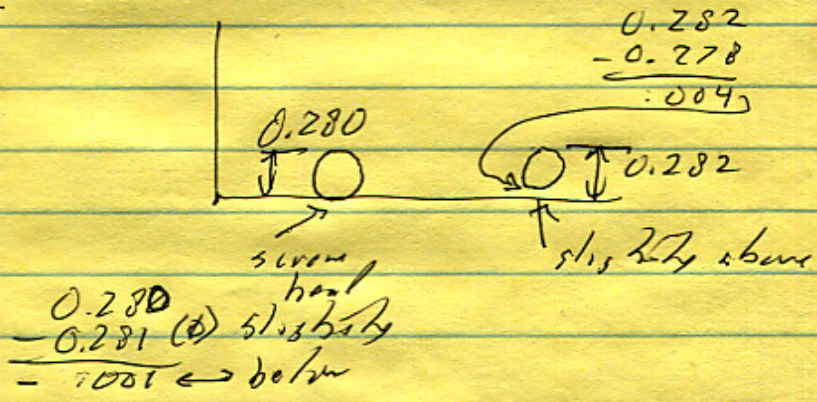 0.282
- 0.278
.004
0.280
0.282
screw
head
slightly above
0.280
- 0.281 (ø) slightly
- .001 ↔ below